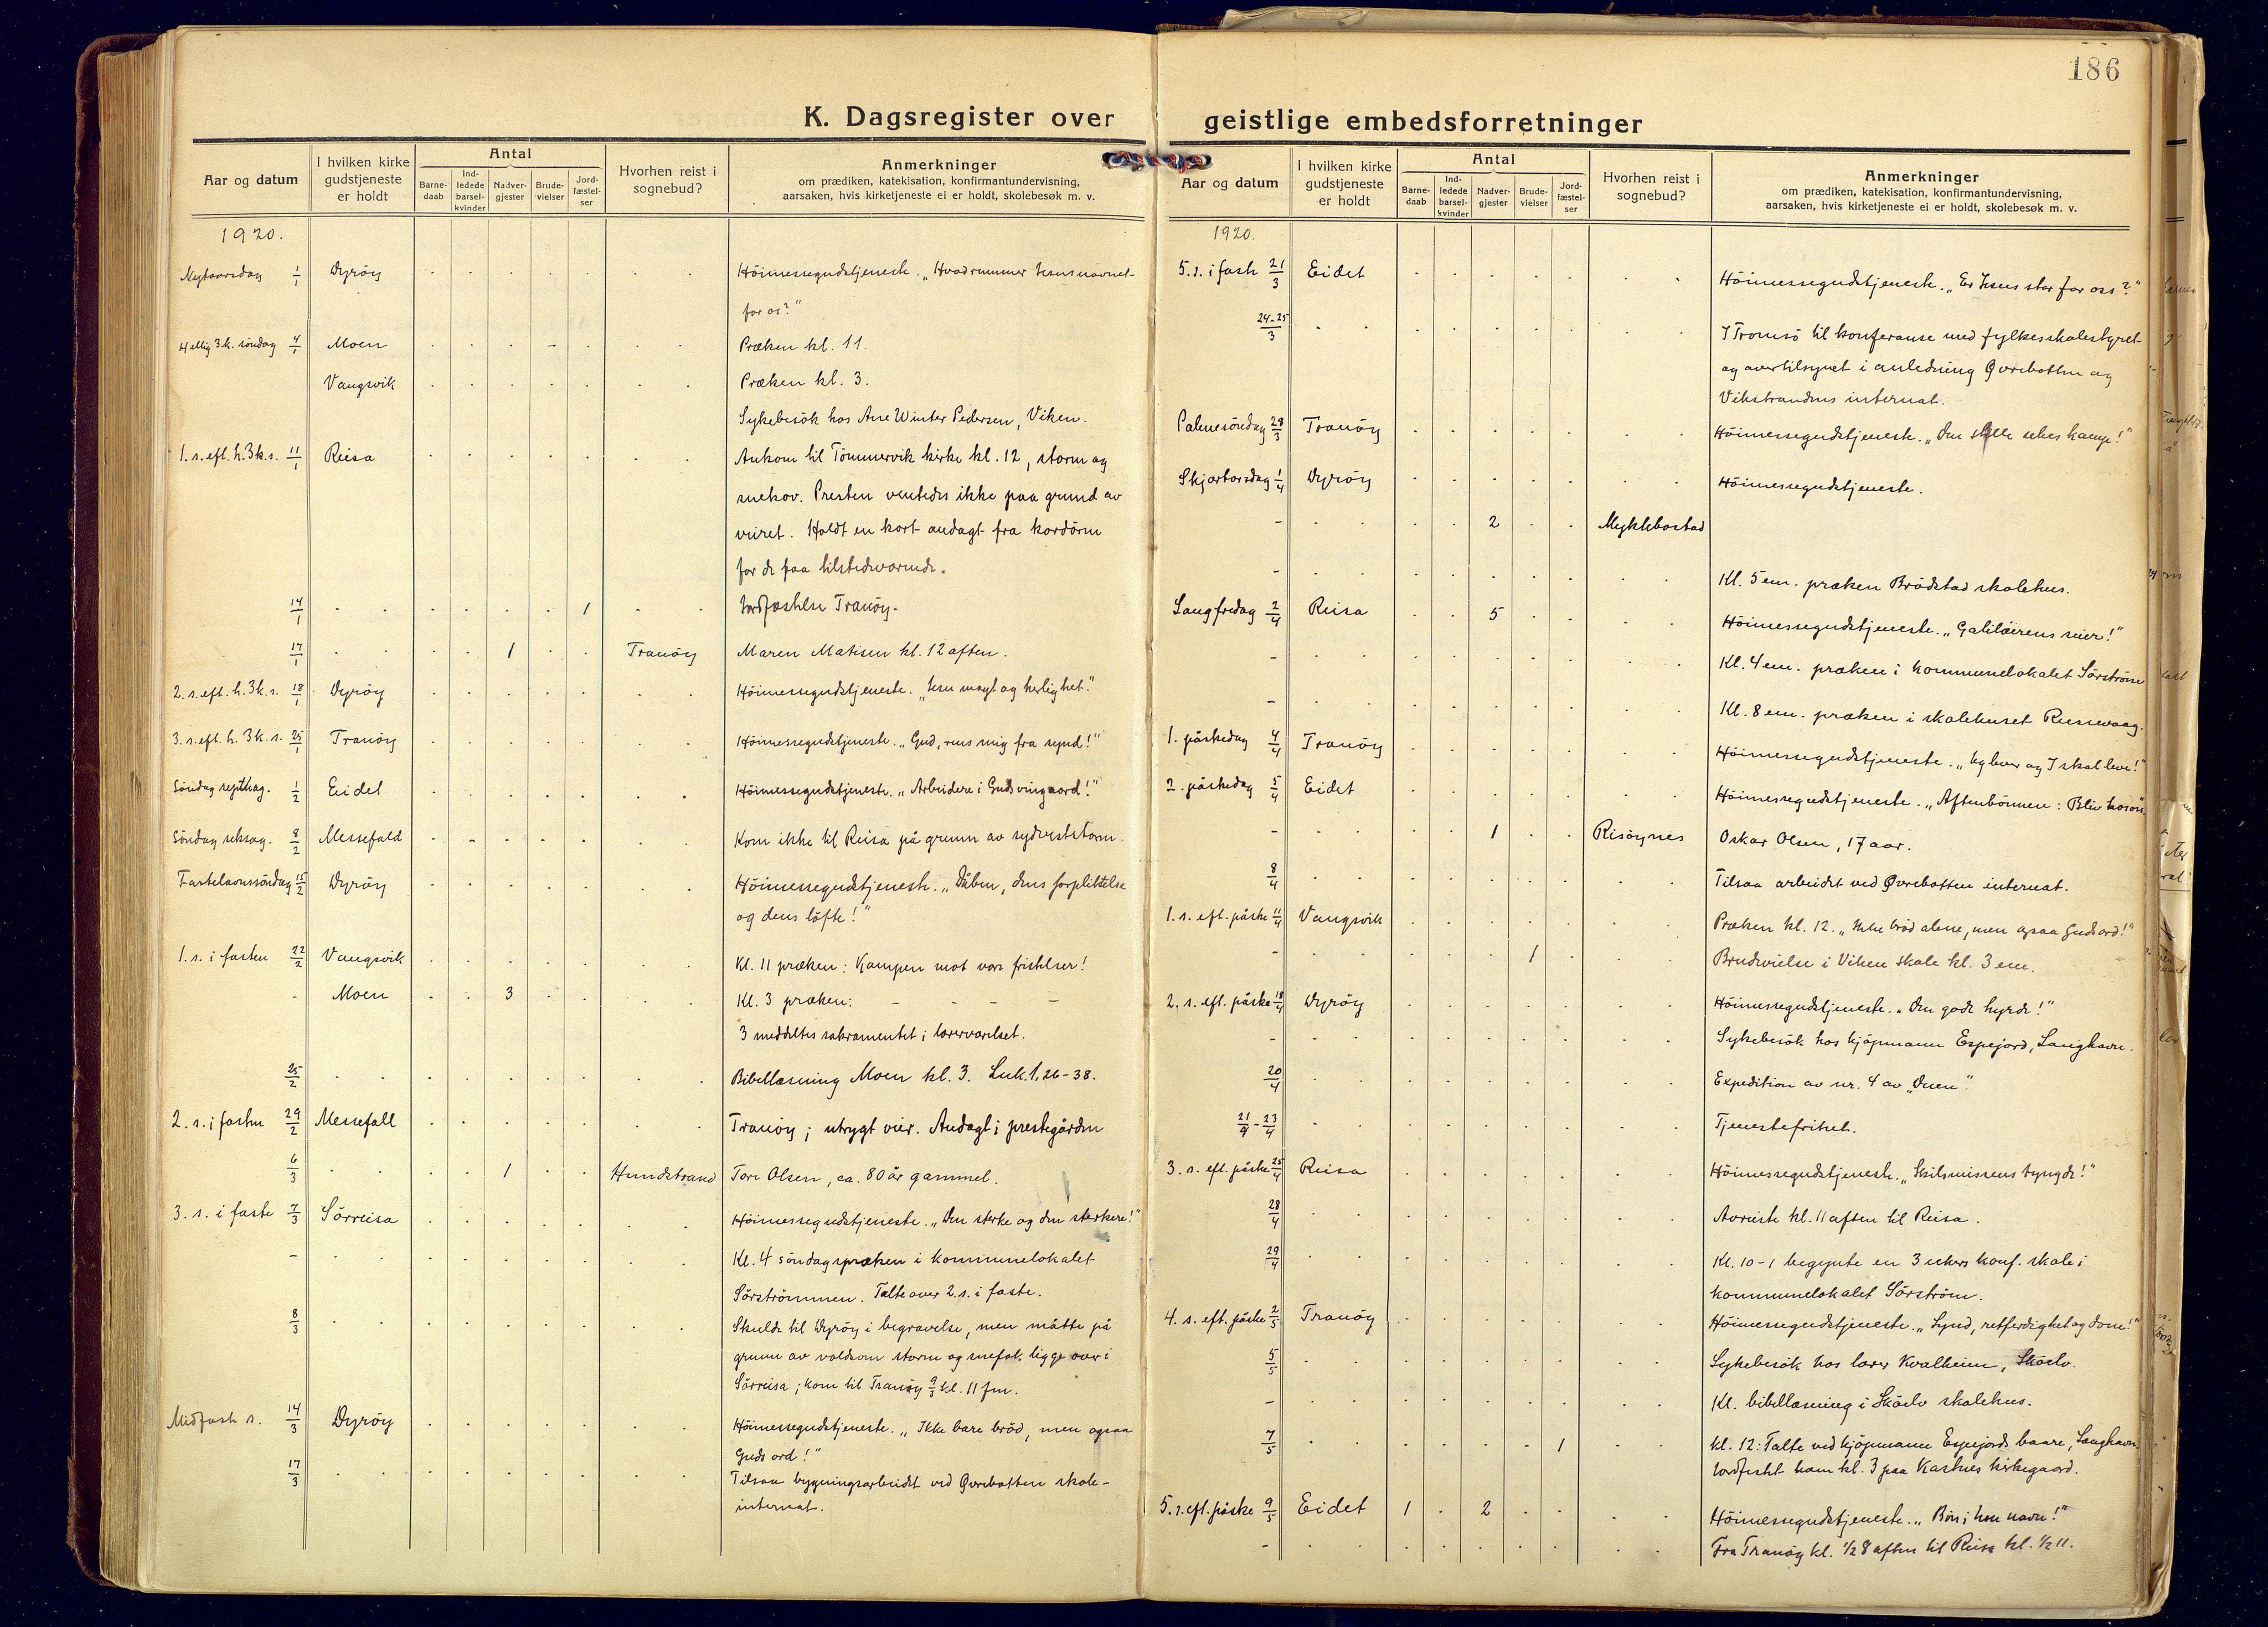 186
K. Dagsregister over
Aar og datum
I hvilken kirke gudstjeneste er holdt
Antal
Barne-daab
Ind-ledede barsel-kvinder
Nadver-gjester
Brude-vielser
Jord-fæstel-ser
Hvorhen reist i sognebud?
Anmerkninger
om prædiken, katekisation, konfirmantundervisning,
aarsaken, hvis kirketjeneste ei er holdt, skolebesøk m. v.
1920.
Nytaarsdag 1/1 Dyröy Höimessegudstjeneste. "Hvad rummer Jesusnavnet
for os?"
H ellig 3 k. söndag 4/1 Moen Præken kl. 11.
Vangsvik Præken kl. 3.
Sykebesök hos Ane Winter Pedersen, Viken.
1. s. eft. h. 3 k. s. 11/1 Reisa Ankom til Tömmervik kirke kl. 12, storm og
snekov. Presten ventedes ikke paa grund av
veiret. Holdt en kort andagt fra kordören
for de faa tilstedeværende.
14/1 1 Jordfæstelse Tranöy.
17/1 1 Tranöy Maren Matisen kl. 12 aften.
2. s. eft. h. 3 k. s. 18/1 Dyröy Höimessegudstjeneste. "Jesu magt og herlighet."
3. s. eft. h. 3 k. s. 25/1 Tranöy Höimessegudstjeneste. "Gud, rens mig fra synd!"
Söndag septuag. 1/2 Eidet Höimessegudstjeneste. "Arbeidere i Guds vingaard!"
Söndag seksag. 8/2 Messefald Kom ikke til Reisa på grunn av sydveststorm.
Fastelavnssöndag 15/2 Dyröy Höimessegudstjeneste. "Dåben, dens forpliktelse
og dens löfte!"
1. s. i fasten 22/2 Vangsvik Kl. 11 præken: Kampen mot vore fristelser!
- Moen 3 Kl. 3 præken: - - - -
3 meddeltes sakramentet i lærerværelset.
25/2 Bibellæsning Moen kl. 3. Luk. 1, 26-38.
2. s. i fasten 29/2 Messefall Tranöy; utrygt veir. Andagt i prestegården
6/3 1 Hundstrand Tore Olsen, ca. 80 år gammel.
3. s. i faste 7/3 Sörreisa Höimessegudstjeneste. "Den sterke og den sterkere!"
- Kl. 4 söndagspræken i kommunelokalet
Sörströmmen. Talte over 2. s. i faste.
8/3 Skulde til Dyröy i begravelse, men måtte på
grunn av voldsom storm og snefok ligge over i
Sörreisa; kom til Tranöy 9/3 kl. 11 fm.
Midfaste s. 14/3 Dyröy Höimessegudstjeneste. "Ikke bare bröd, men ogsaa
Guds ord!"
17/3 Tilsaa bygningsarbeidet ved Øvrebotten skole-
internat.
geistlige embedsforretninger
Aar og datum
I hvilken kirke gudstjeneste er holdt
Antal
Barne-daab
Ind-ledede barsel-kvinder
Nadver-gjester
Brude-vielser
Jord-fæstel-ser
Hvorhen reist i sognebud?
Anmerkninger
om prædiken, katekisation, konfirmantundervisning,
aarsaken, hvis kirketjeneste ei er holdt, skolebesøk m. v.
1920.
5. s. i faste 21/3 Eidet Höimessegudstjeneste. "Er Jesus stor for oss?"
24-25/3 I Tromsö til konferanse med fylkesskolestyret
og overtilsynet i anledning Øvrebotten og
Vikstrandens internat.
Palmesöndag 28/3 Tranöy Höimessegudstjeneste. "Den stille ukes konge!"
Skjærtorsdag 1/4 Dyröy Höimessegudstjeneste.
- 2 Myklebostad
- Kl. 5 em. præken Brödstad skolehus.
Langfredag 2/4 Reisa 5 Höimessegudstjeneste. "Galilæerens seier!"
- Kl. 4 em. præken i kommunelokalet Sörström
- Kl. 8 em. præken i skolehuset Russevaag.
1. påskedag 4/4 Tranöy Höimessegudstjeneste. "Jeg lever og I skal leve!"
2. påskedag 5/4 Eidet Höimessegudstjeneste. "Aftenbönnen: Bliv hos oss".
- 1 Risöynes Oskar Olsen, 17 aar.
8/4 Tilsaa arbeidet ved Øvrebotten internat.
1. s. eft. påske 11/4 Vangsvik Præken kl. 12. "Ikke bröd alene, men ogsaa Guds ord!"
- 1 Brudevielse i Viken skole kl. 3 em.
2. s. eft. påske 18/4 Dyröy Höimessegudstjeneste. "Den gode hyrde!"
- Sykebesök hos kjöpmann Espejord, Langhavn.
20/4 Expedition av nr. 4 av "Duen".
21/4 - 23/4 Tjenestefrihet.
3. s. eft. påske 25/4 Reisa Höimessegudstjeneste. "Skilsmissens tyngde!"
28/4 Avreiste kl. 11 aften til Reisa.
29/4 Kl. 10-1 begynte en 3 ukers konf. skole i
kommunelokalet Sörström.
4. s. eft. påske 2/5 Tranöy Höimessegudstjeneste. "Synd, retferdighet og dom!"
5/5 Sykebesök hos lærer Kvalheim, Sköelv.
- Kl. bibellæsning i Sköelv skolehus.
7/5 1 Kl. 12: Talte ved kjöpmann Espejords baare, Langhavn.
Jordfestet ham kl. 3 paa Kastnes kirkegaard.
5. s. eft. påske 9/5 Eidet 1 2 Höimessegudstjeneste. "Bön i Jesu navn!"
- Fra Tranöy kl. 1/2 8 aften til Reisa kl. 1/2 11.